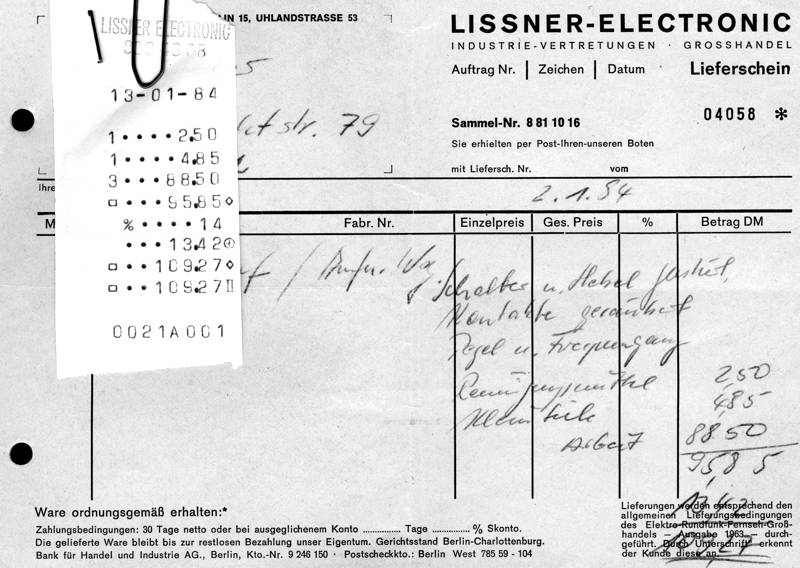 LISSNER ELECTRONIC
13-01-84
1••••2.50
1••••4.85
3•••88.50
□•••95.85◇
%••••14
•••13.42⊕
□••109.27◇
□••109.27II
0021A001
IN 15, UHLANDSTRASSE 53
str. 79
Ihre
LISSNER-ELECTRONIC
INDUSTRIE-VERTRETUNGEN · GROSSHANDEL
Auftrag Nr. | Zeichen | Datum Lieferschein
04058 *
Sammel-Nr. 8 81 10 16
Sie erhielten per Post-Ihren-unseren Boten
mit Liefersch. Nr. vom
2.1.84
M Fabr. Nr. Einzelpreis Ges. Preis % Betrag DM
Schalter u. Hebel justiert,
Kontakte gereinigt
Pegel u. Frequenzgang
Reinigungsmittel 2,50
Kleinteile 4,85
Arbeit 88 50
95,8 5
13,42
109,27
Ware ordnungsgemäß erhalten:*
Zahlungsbedingungen: 30 Tage netto oder bei ausgeglichenem Konto ............... Tage ............... % Skonto.
Die gelieferte Ware bleibt bis zur restlosen Bezahlung unser Eigentum. Gerichtsstand Berlin-Charlottenburg.
Bank für Handel und Industrie AG., Berlin, Kto.-Nr. 9 246 150 · Postscheckkto.: Berlin West 785 59 - 104
Lieferungen werden entsprechend den
allgemeinen Lieferungsbedingungen
des Elektro-Rundfunk-Fernseh-Groß-
handels – Ausgabe 1963 – durch-
geführt. Durch Unterschrift erkennt
der Kunde diese an.